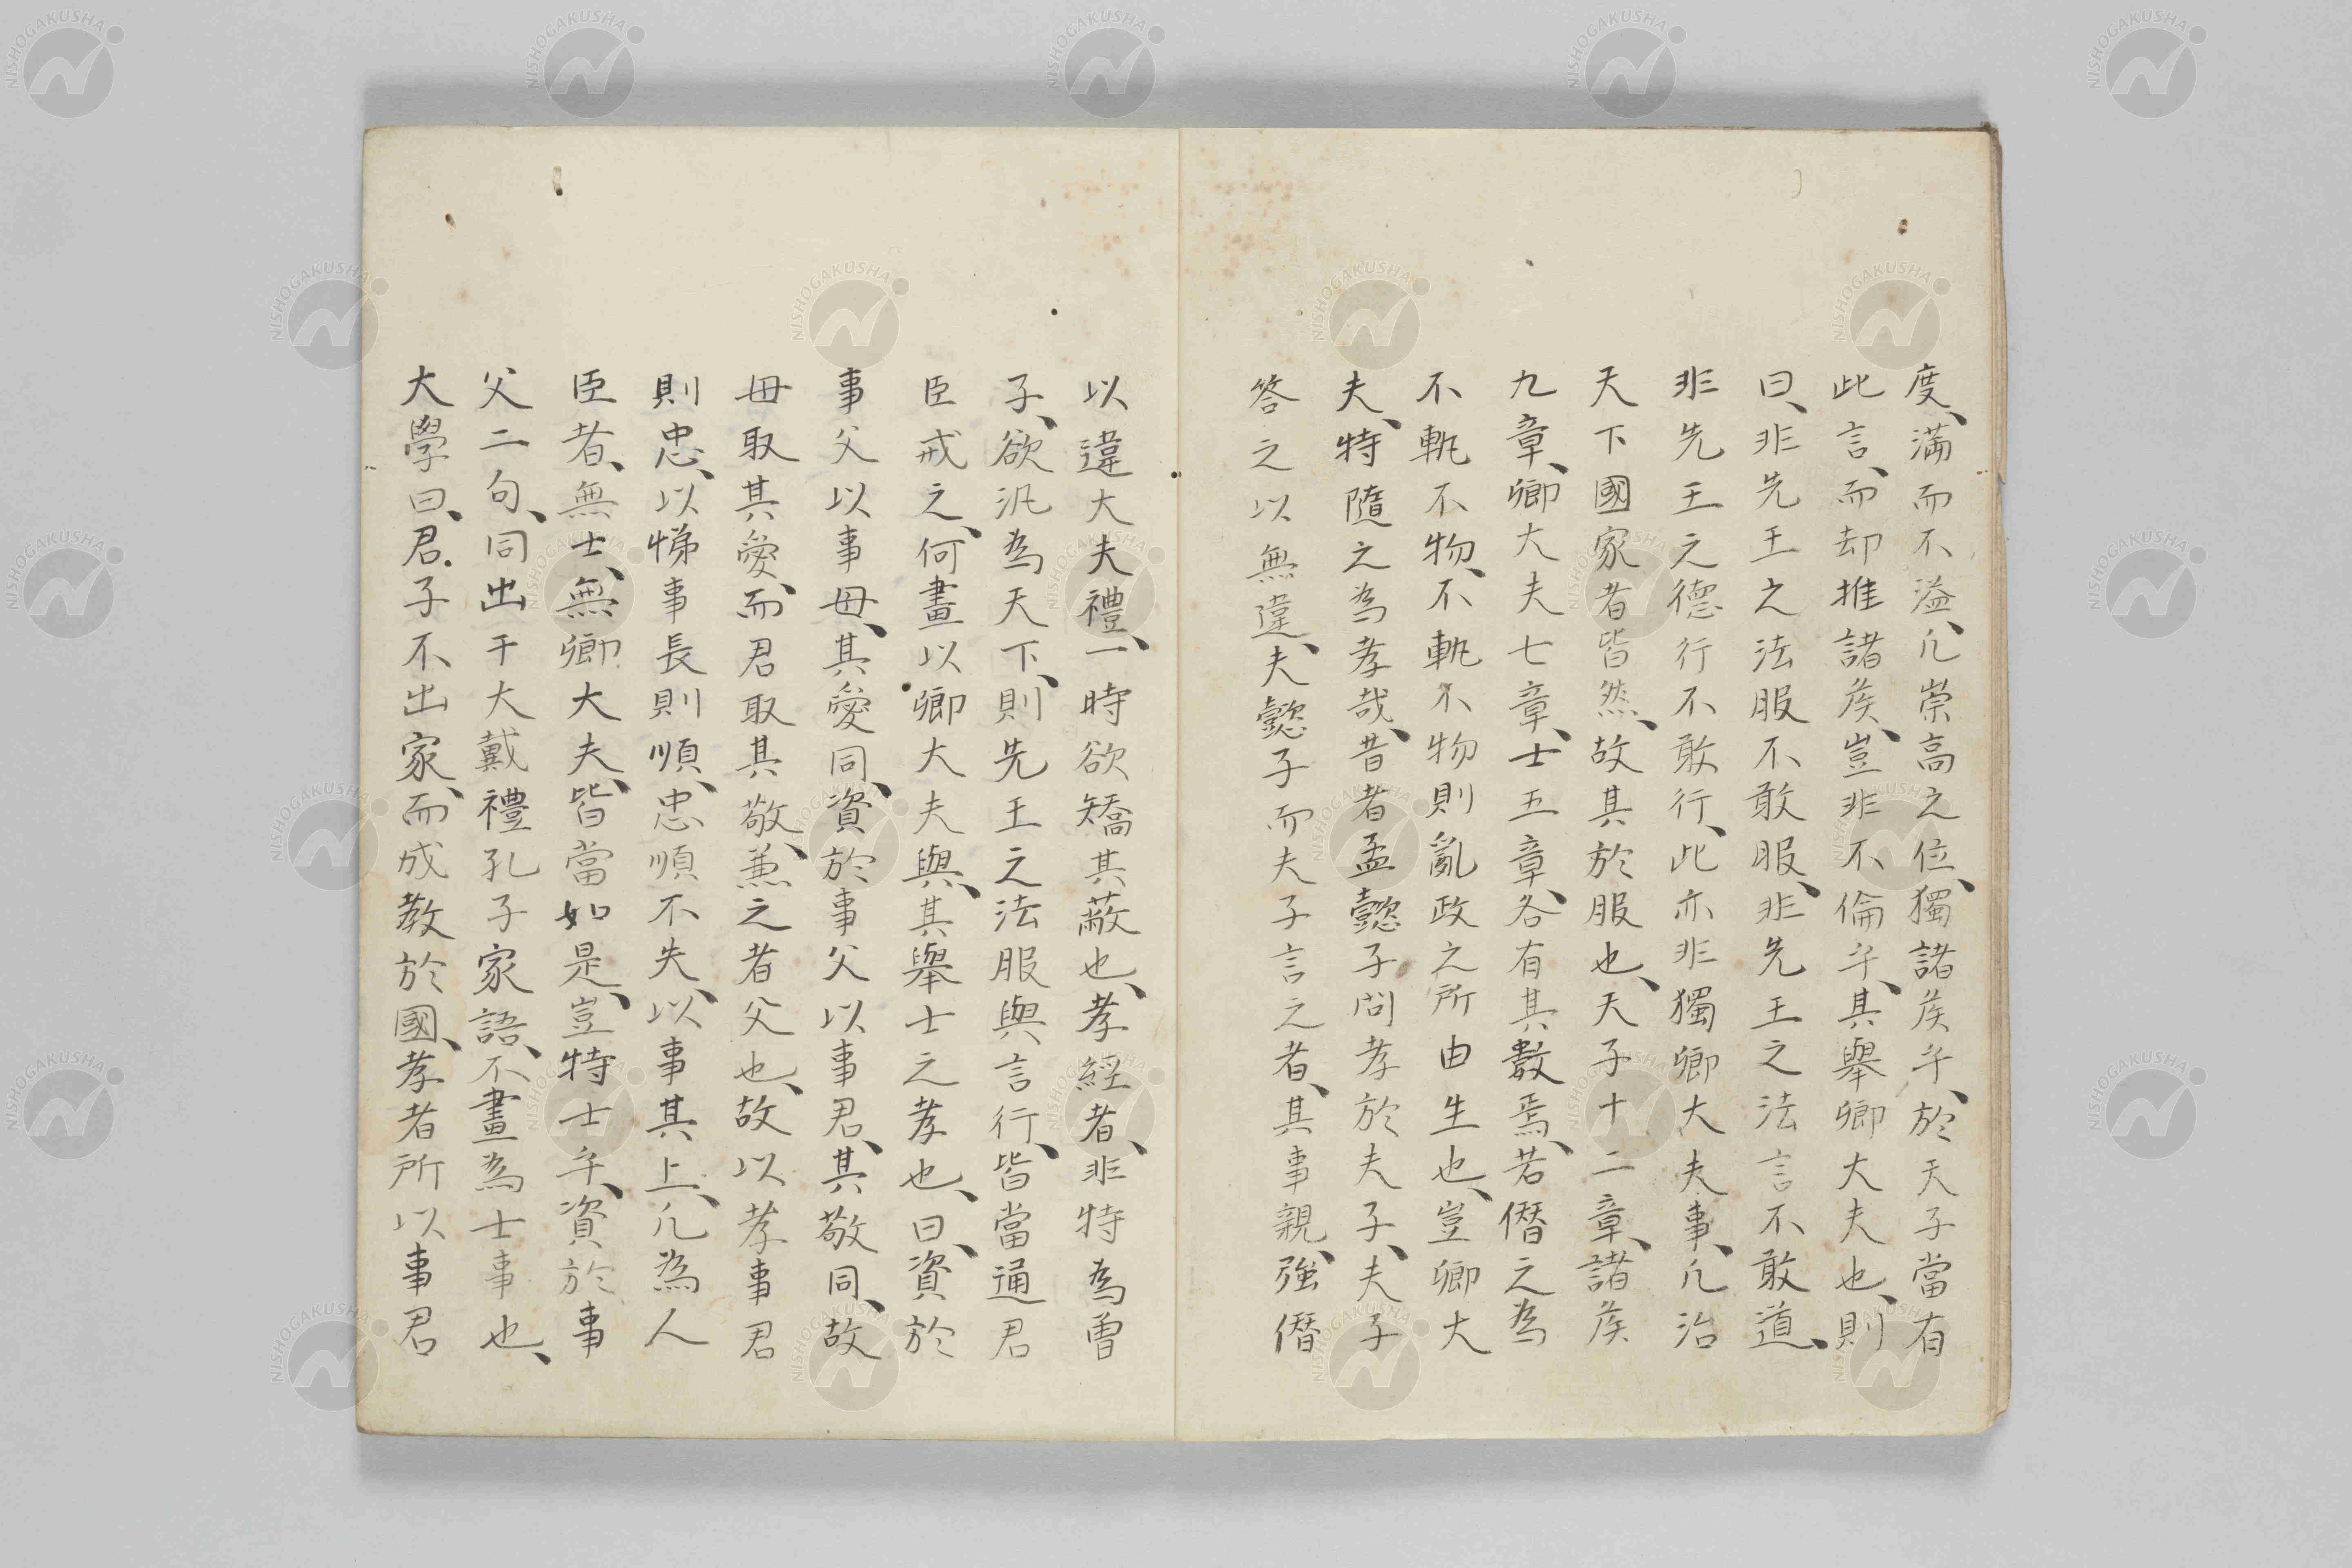 度、滿而不溢、凢崇高之位、獨諸矦乎、於天子當有
此言、而却推諸矦、豈非不倫乎、其舉卿大夫也、則
曰、非先王之法服不敢服、非先王之法言不敢道、
非先王之德行不敢行、此亦非獨卿大夫事、凢治
天下國家者皆然、故其於服也、天子十二章、諸矦
九章、卿大夫七章、士五章、各有其數焉、若僭之為
不軌不物、不軌不物則亂政之所由生也、豈卿大
夫、特隨之為孝哉、昔者孟懿子問孝於夫子、夫子
答之以無違、夫懿子而夫子言之者、其事親、強僭
以違大夫禮、一時欲矯其蔽也、孝經者、非特為曽
子、欲汎為天下、則先王之法服與言行、皆當通君
臣戒之、何畫以卿大夫與、其舉士之孝也、曰、資於
事父以事母、其愛同、資於事父以事君、其敬同、故
母取其愛、而君取其敬、兼之者父也、故以孝事君
則忠、以悌事長則順、忠順不失、以事其上、凢為人
臣者、無士、無卿大夫、皆當如是、豈特士乎、資於事
父二句、同出于大戴禮孔子家語、不畫為士事也、
大學曰、君子不出家、而成教於國、孝者所以事君
NISHOGAKUSHA